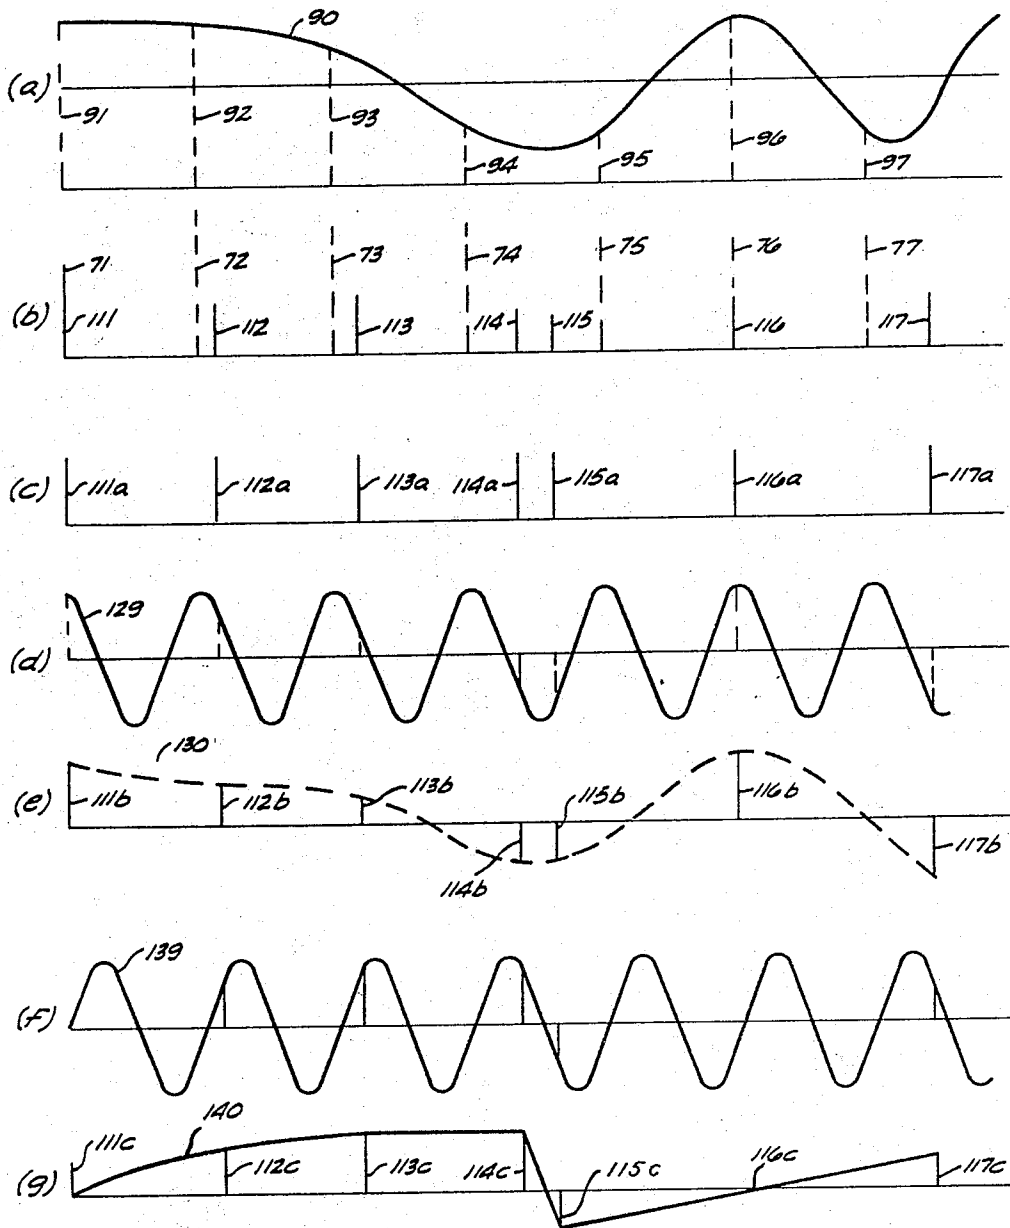 90
(a)
91
92
93
94
95
96
97
71
72
73
74
75
76
77
(b)
111
112
113
114
115
116
117
(c)
111a
112a
113a
114a
115a
116a
117a
129
(d)
130
(e)
111b
112b
113b
114b
115b
116b
117b
139
(f)
140
111c
(g)
112c
113c
114c
115c
116c
117c